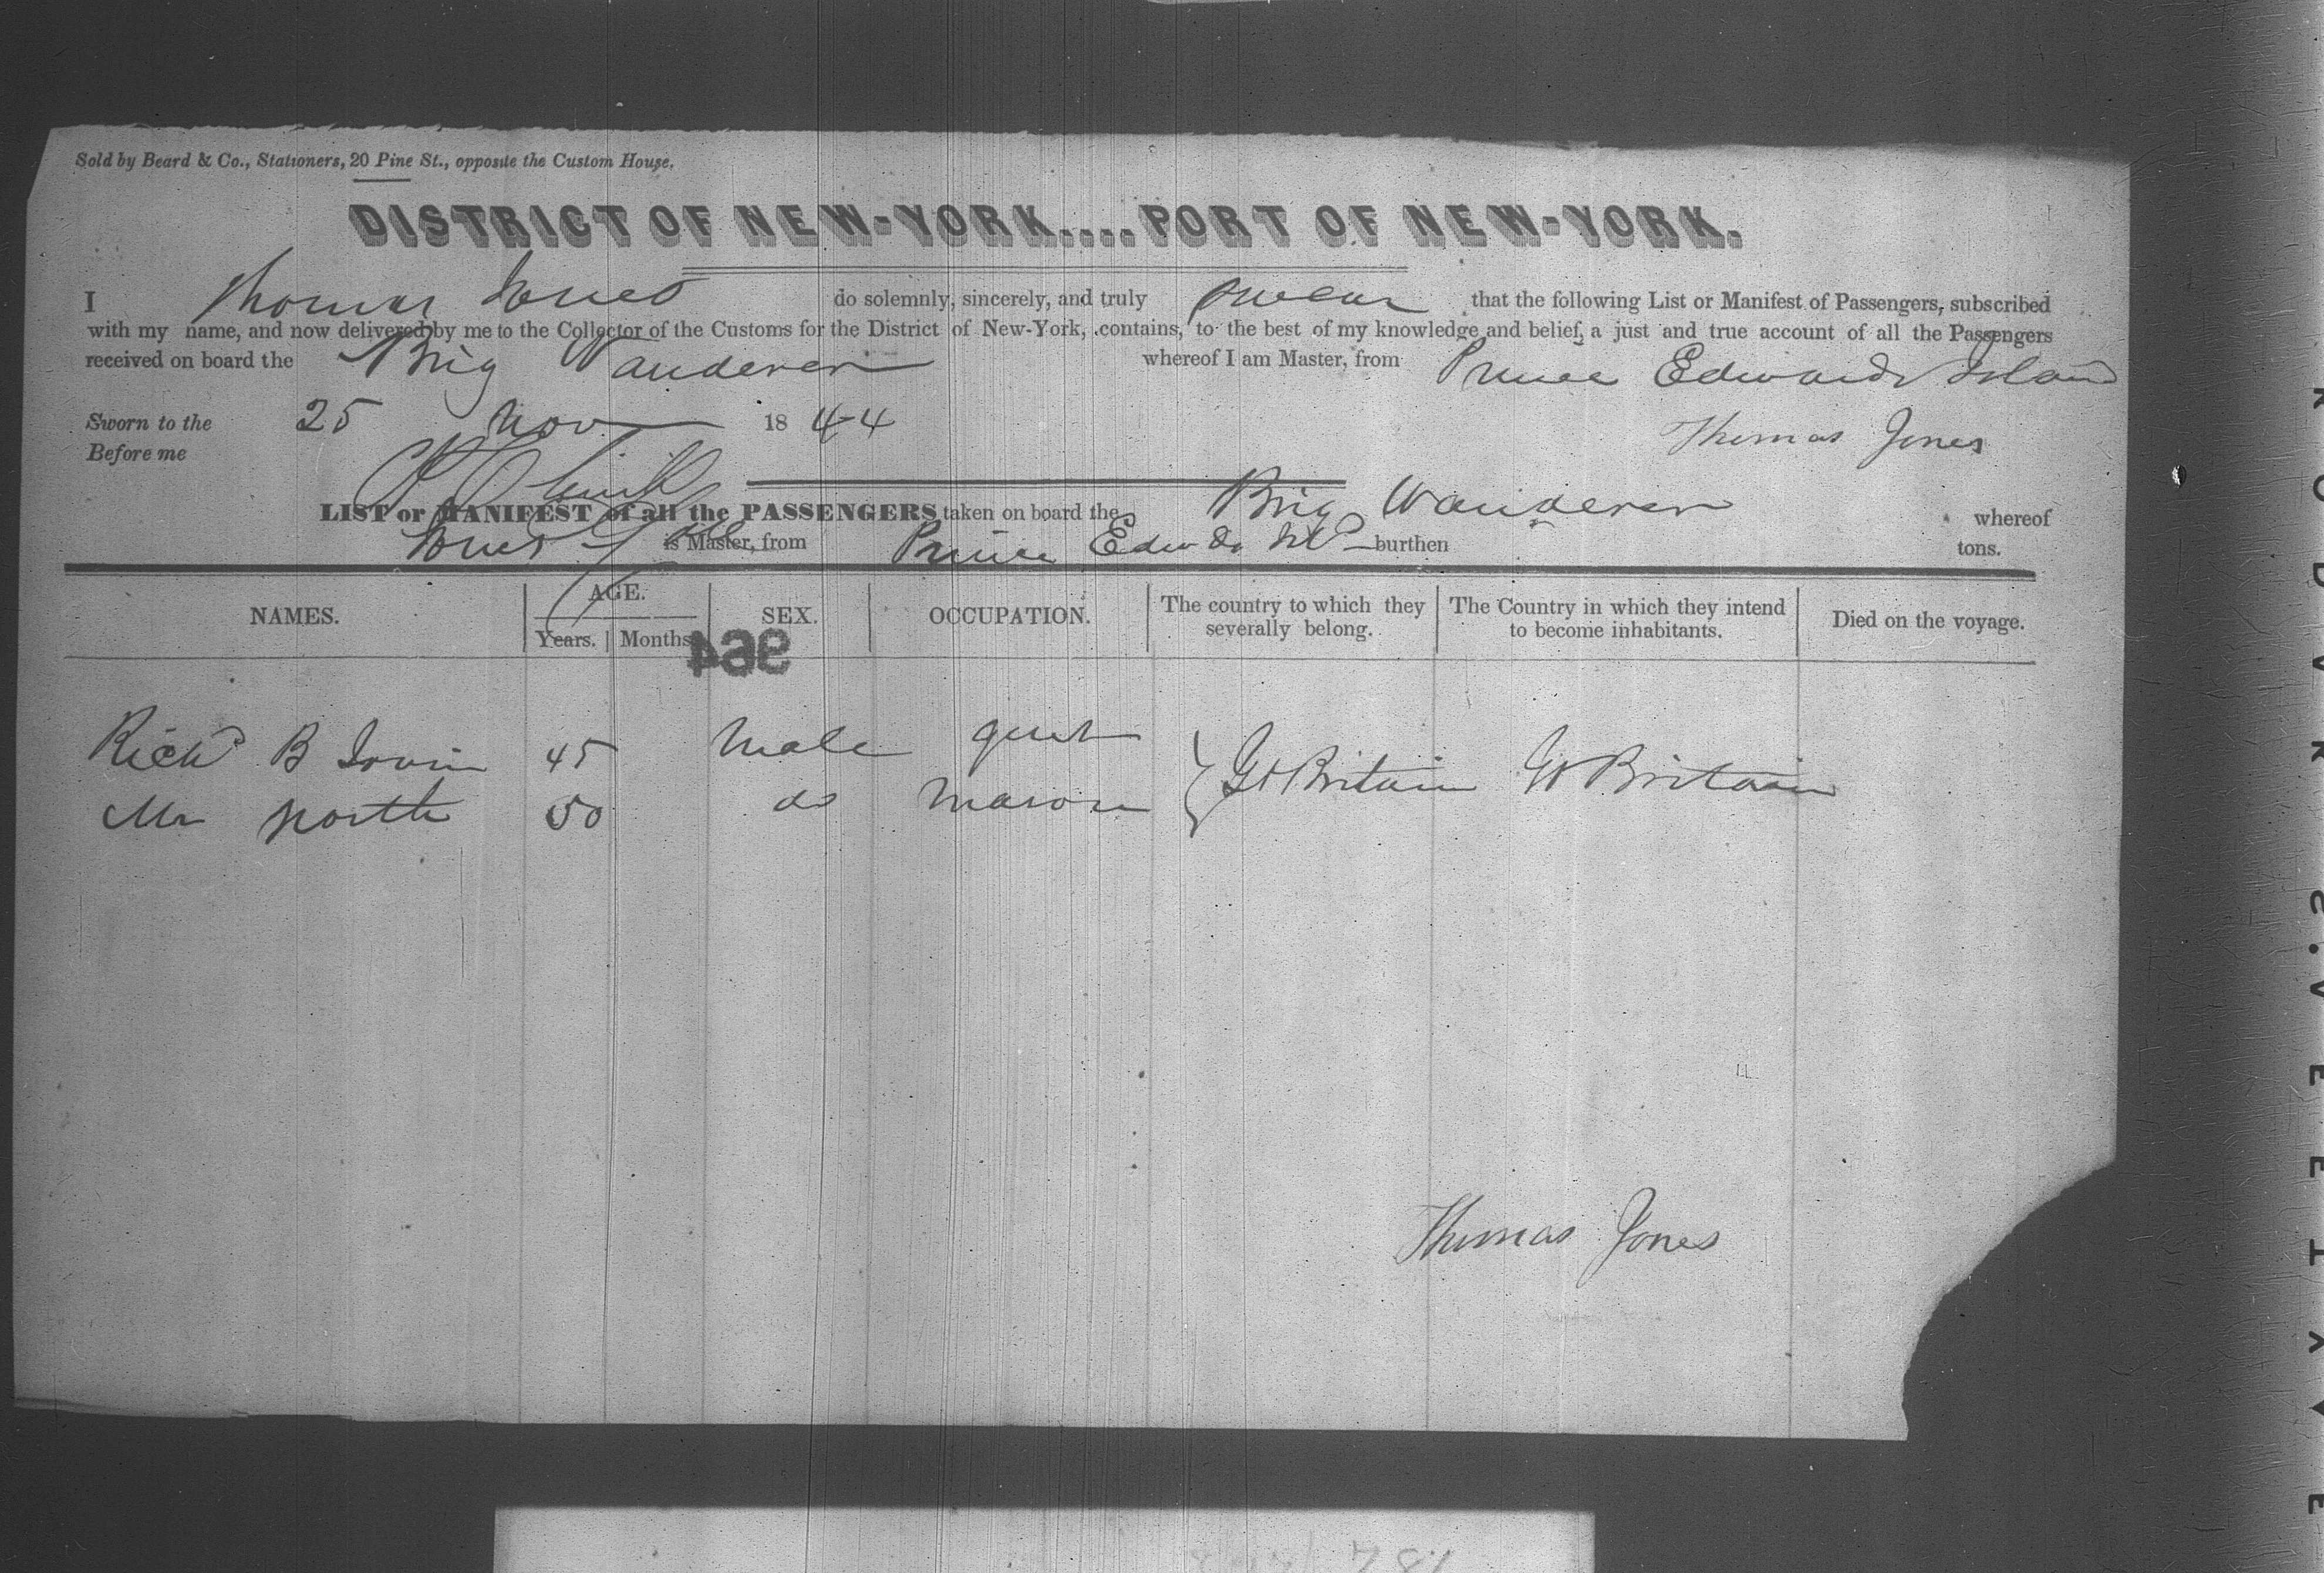 Sold by Beard & Co., Stationers, 20 Pine St., opposite the Custom House.
DISTRICT OF NEW-YORK....PORT OF NEW-YORK.
I Thomas Jones do solemnly, sincerely, and truly swear that the following List or Manifest of Passengers, subscribed
with my name, and now delivered by me to the Collector of the Customs for the District of New-York, contains, to the best of my knowledge and belief, a just and true account of all the Passengers
received on board the Brig Wanderer whereof I am Master, from Prince Edwards Island
Sworn to the 25 Nov 1844 Thomas Jones
Before me
LIST or MANIFEST of all the PASSENGERS taken on board the Brig Wanderer whereof
Jones is Master, from Prince Edwds Isld burthen tons.
NAMES. AGE. SEX. OCCUPATION. The country to which they severally belong. The Country in which they intend to become inhabitants. Died on the voyage.
Years. Months
964
Richd B Irvin 45 Male gent Gt Britain Gt Britain
Mr North 50 do Mason
Thomas Jones